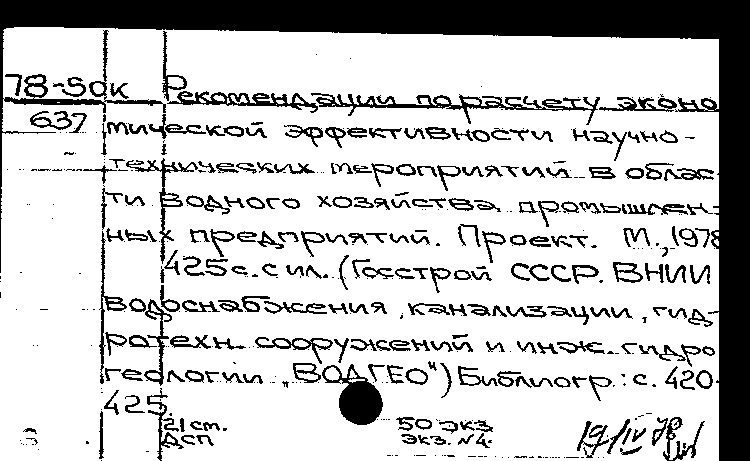 78-50к Рекомендации по расчету эконо
637 мической эффективности научно-
технических мероприятий в облас-
ти водного хозяйства промышлен-
ных предприятий. Проект. М., 1978
425 с. с ил. (Госстрой СССР. ВНИИ
водоснабжения, канализации, гид-
ротехн. сооружений и инж. гидро
геологии „ВОДГЕО") Библиогр.: с. 420-
425
21 ст. 50 экз
ДСП экз. №4 19/IV 78